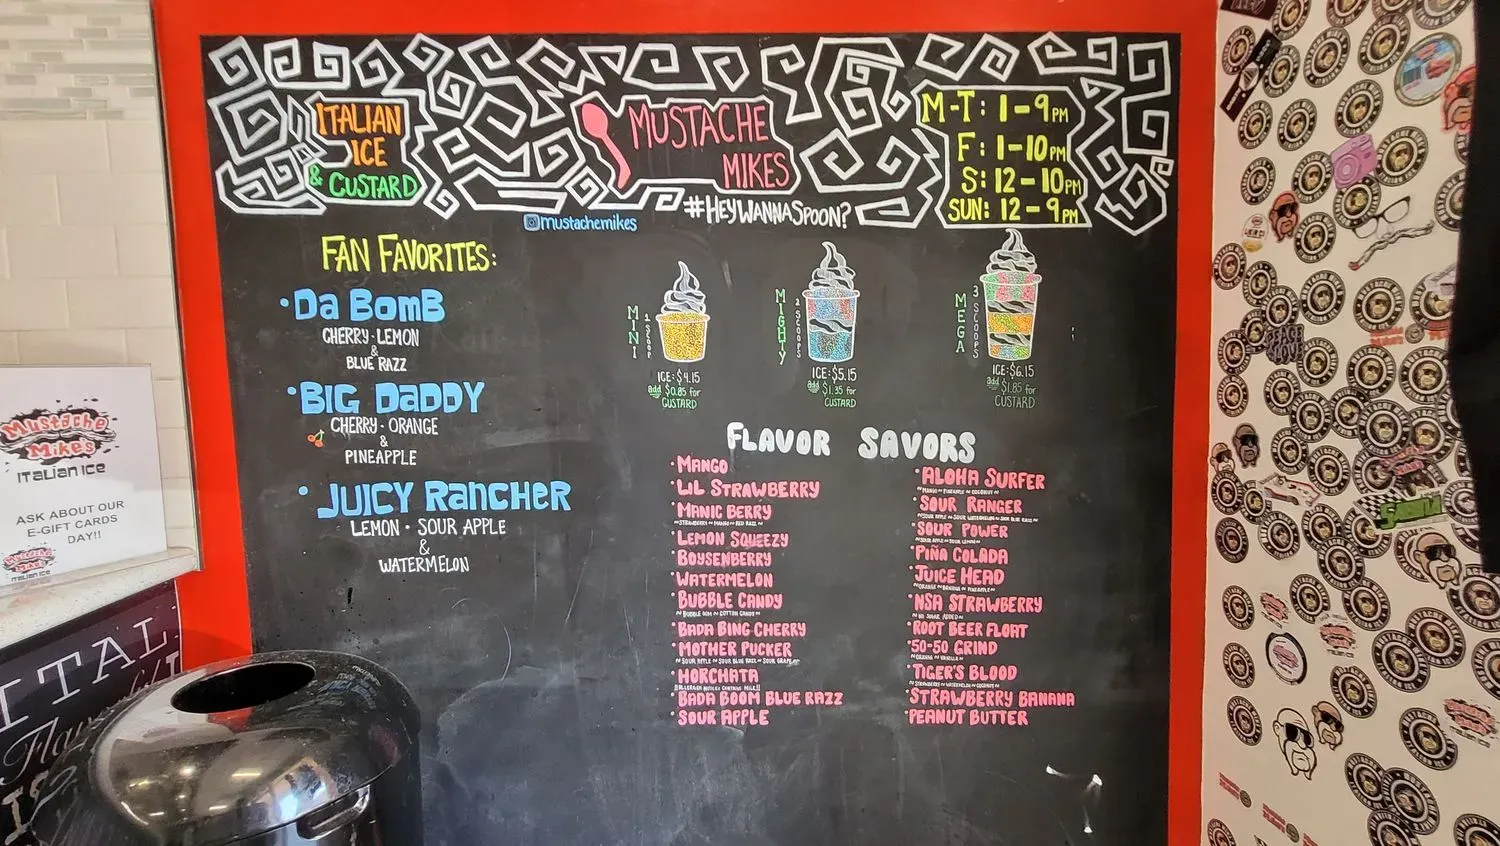 ITALIAN
ICE
& CUSTARD
MUSTACHE
MIKES
#HEYWANNASPOON?
mustachemikes
M-T: 1-9PM
F: 1-10PM
S: 12-10PM
SUN: 12-9PM
FAN FAVORITES:
·Da BomB
CHERRY·LEMON
&
BLUE RAZZ
·BIG DaDDY
CHERRY·ORANGE
&
PINEAPPLE
·JUICY RancHER
LEMON · SOUR APPLE
&
WATERMELON
MINI
1 SCOOP
ICE:$4.15
add $0.85 for
CUSTARD
MIGHTY
2 SCOOPS
ICE:$5.15
add $1.35 for
CUSTARD
MEGA
3 SCOOPS
ICE:$6.15
add $1.85 for
CUSTARD
FLAVOR SAVORS
·MANGO
·LIL STRAWBERRY
·MANIC BERRY
~STRAWBERRY~MANGO~RED RAZZ~
·LEMON SQUEEZY
·BOYSENBERRY
·WATERMELON
·BUBBLE CANDY
~BUBBLE GUM~COTTON CANDY~
·BADA BING CHERRY
·MOTHER PUCKER
~SOUR APPLE~SOUR BLUE RAZZ~SOUR GRAPE~
·HORCHATA
·BADA BOOM BLUE RAZZ
·SOUR APPLE
·ALOHA SURFER
~MANGO~PINEAPPLE~COCONUT~
·SOUR RANGER
~SOUR APPLE~SOUR WATERMELON~SOUR BLUE RAZZ~
·SOUR POWER
~SOUR APPLE~SOUR LEMON~
·PIÑA COLADA
·JUICE HEAD
~ORANGE~BANANA~PINEAPPLE~
·NSA STRAWBERRY
~NO SUGAR ADDED~
·ROOT BEER FLOAT
·50-50 GRIND
~ORANGE~VANILLA~
·TIGER'S BLOOD
~STRAWBERRY~WATERMELON~COCONUT~
·STRAWBERRY BANANA
·PEANUT BUTTER
Mustache
Mike's
ITALIAN ICE
ASK ABOUT OUR
E-GIFT CARDS
DAY!!
Mustache
Mike's
ITALIAN ICE
ITAL
PEACE
LOVE